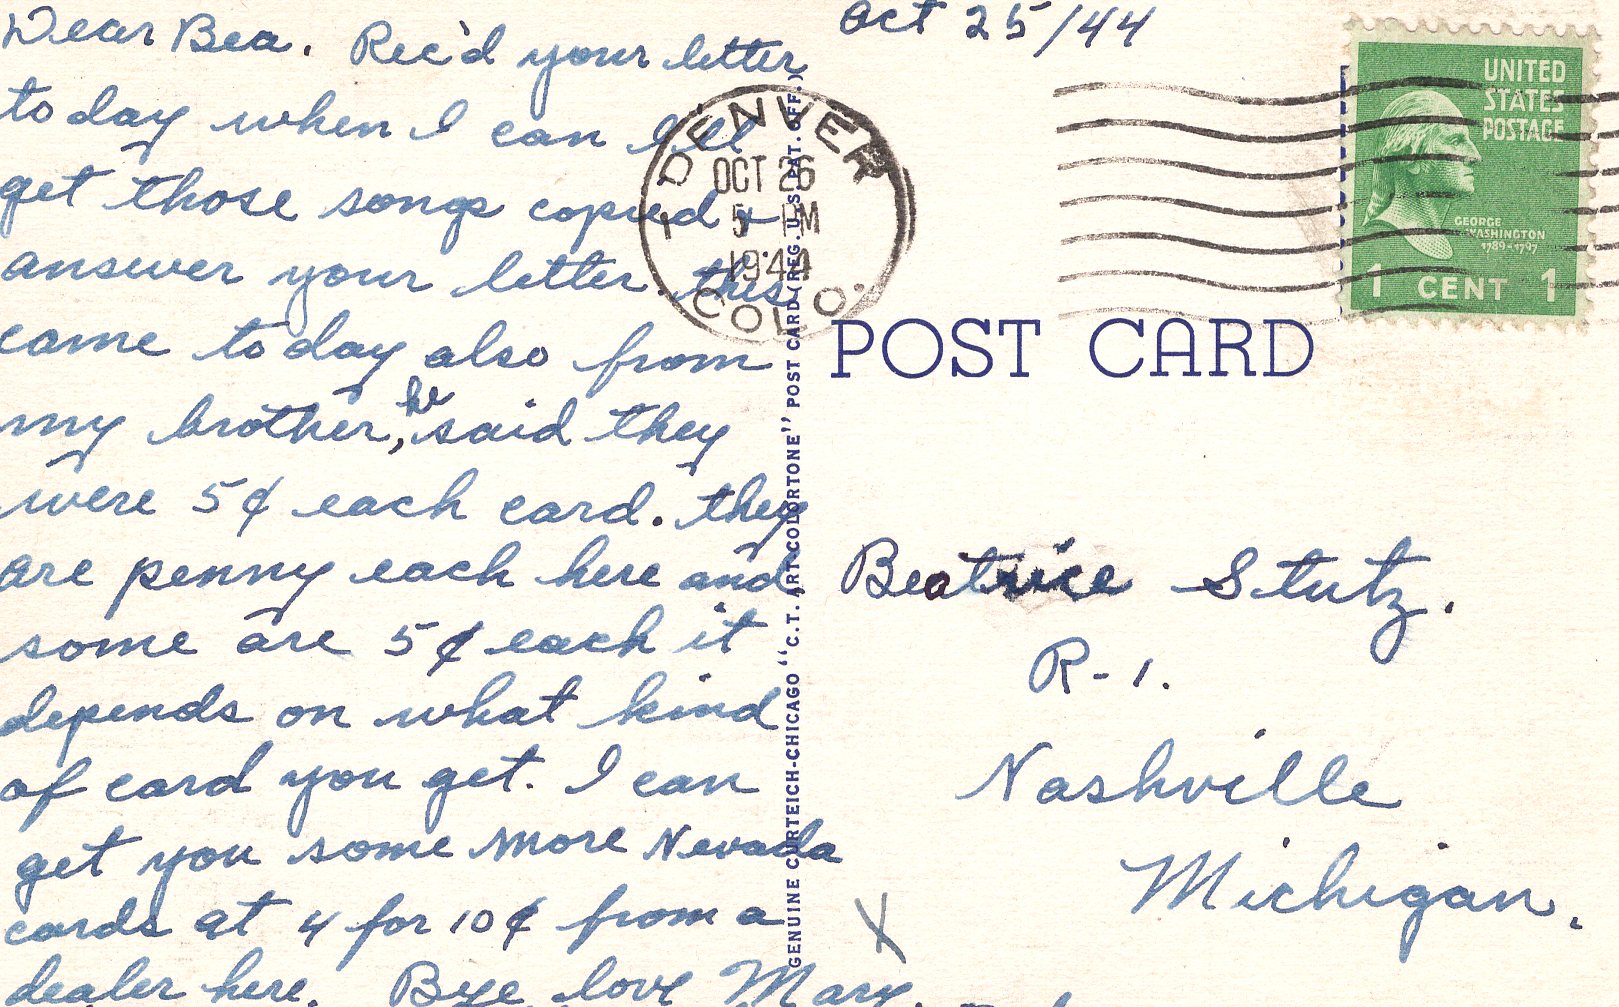 Oct 25/44
Dear Bea. Rec'd your letter
today when I can I'll
get those songs copied &
answer your letter. this
came today also from
my brother, he said they
were 5¢ each card. they
are penny each here and
some are 5¢ each it
depends on what kind
of card you get. I can
get you some more Nevada
cards at 4 for 10¢ from a
dealer here. Bye love Mary.
DENVER
OCT 26
5 PM
1944
COLO.
UNITED
STATES
POSTAGE
GEORGE
WASHINGTON
1789-1797
1 CENT 1
POST CARD
GENUINE CURTEICH-CHICAGO "C.T. ART-COLORTONE" POST CARD (REG. U.S. PAT. OFF.)
Beatrice Stutz.
R-1.
Nashville
Michigan.
X